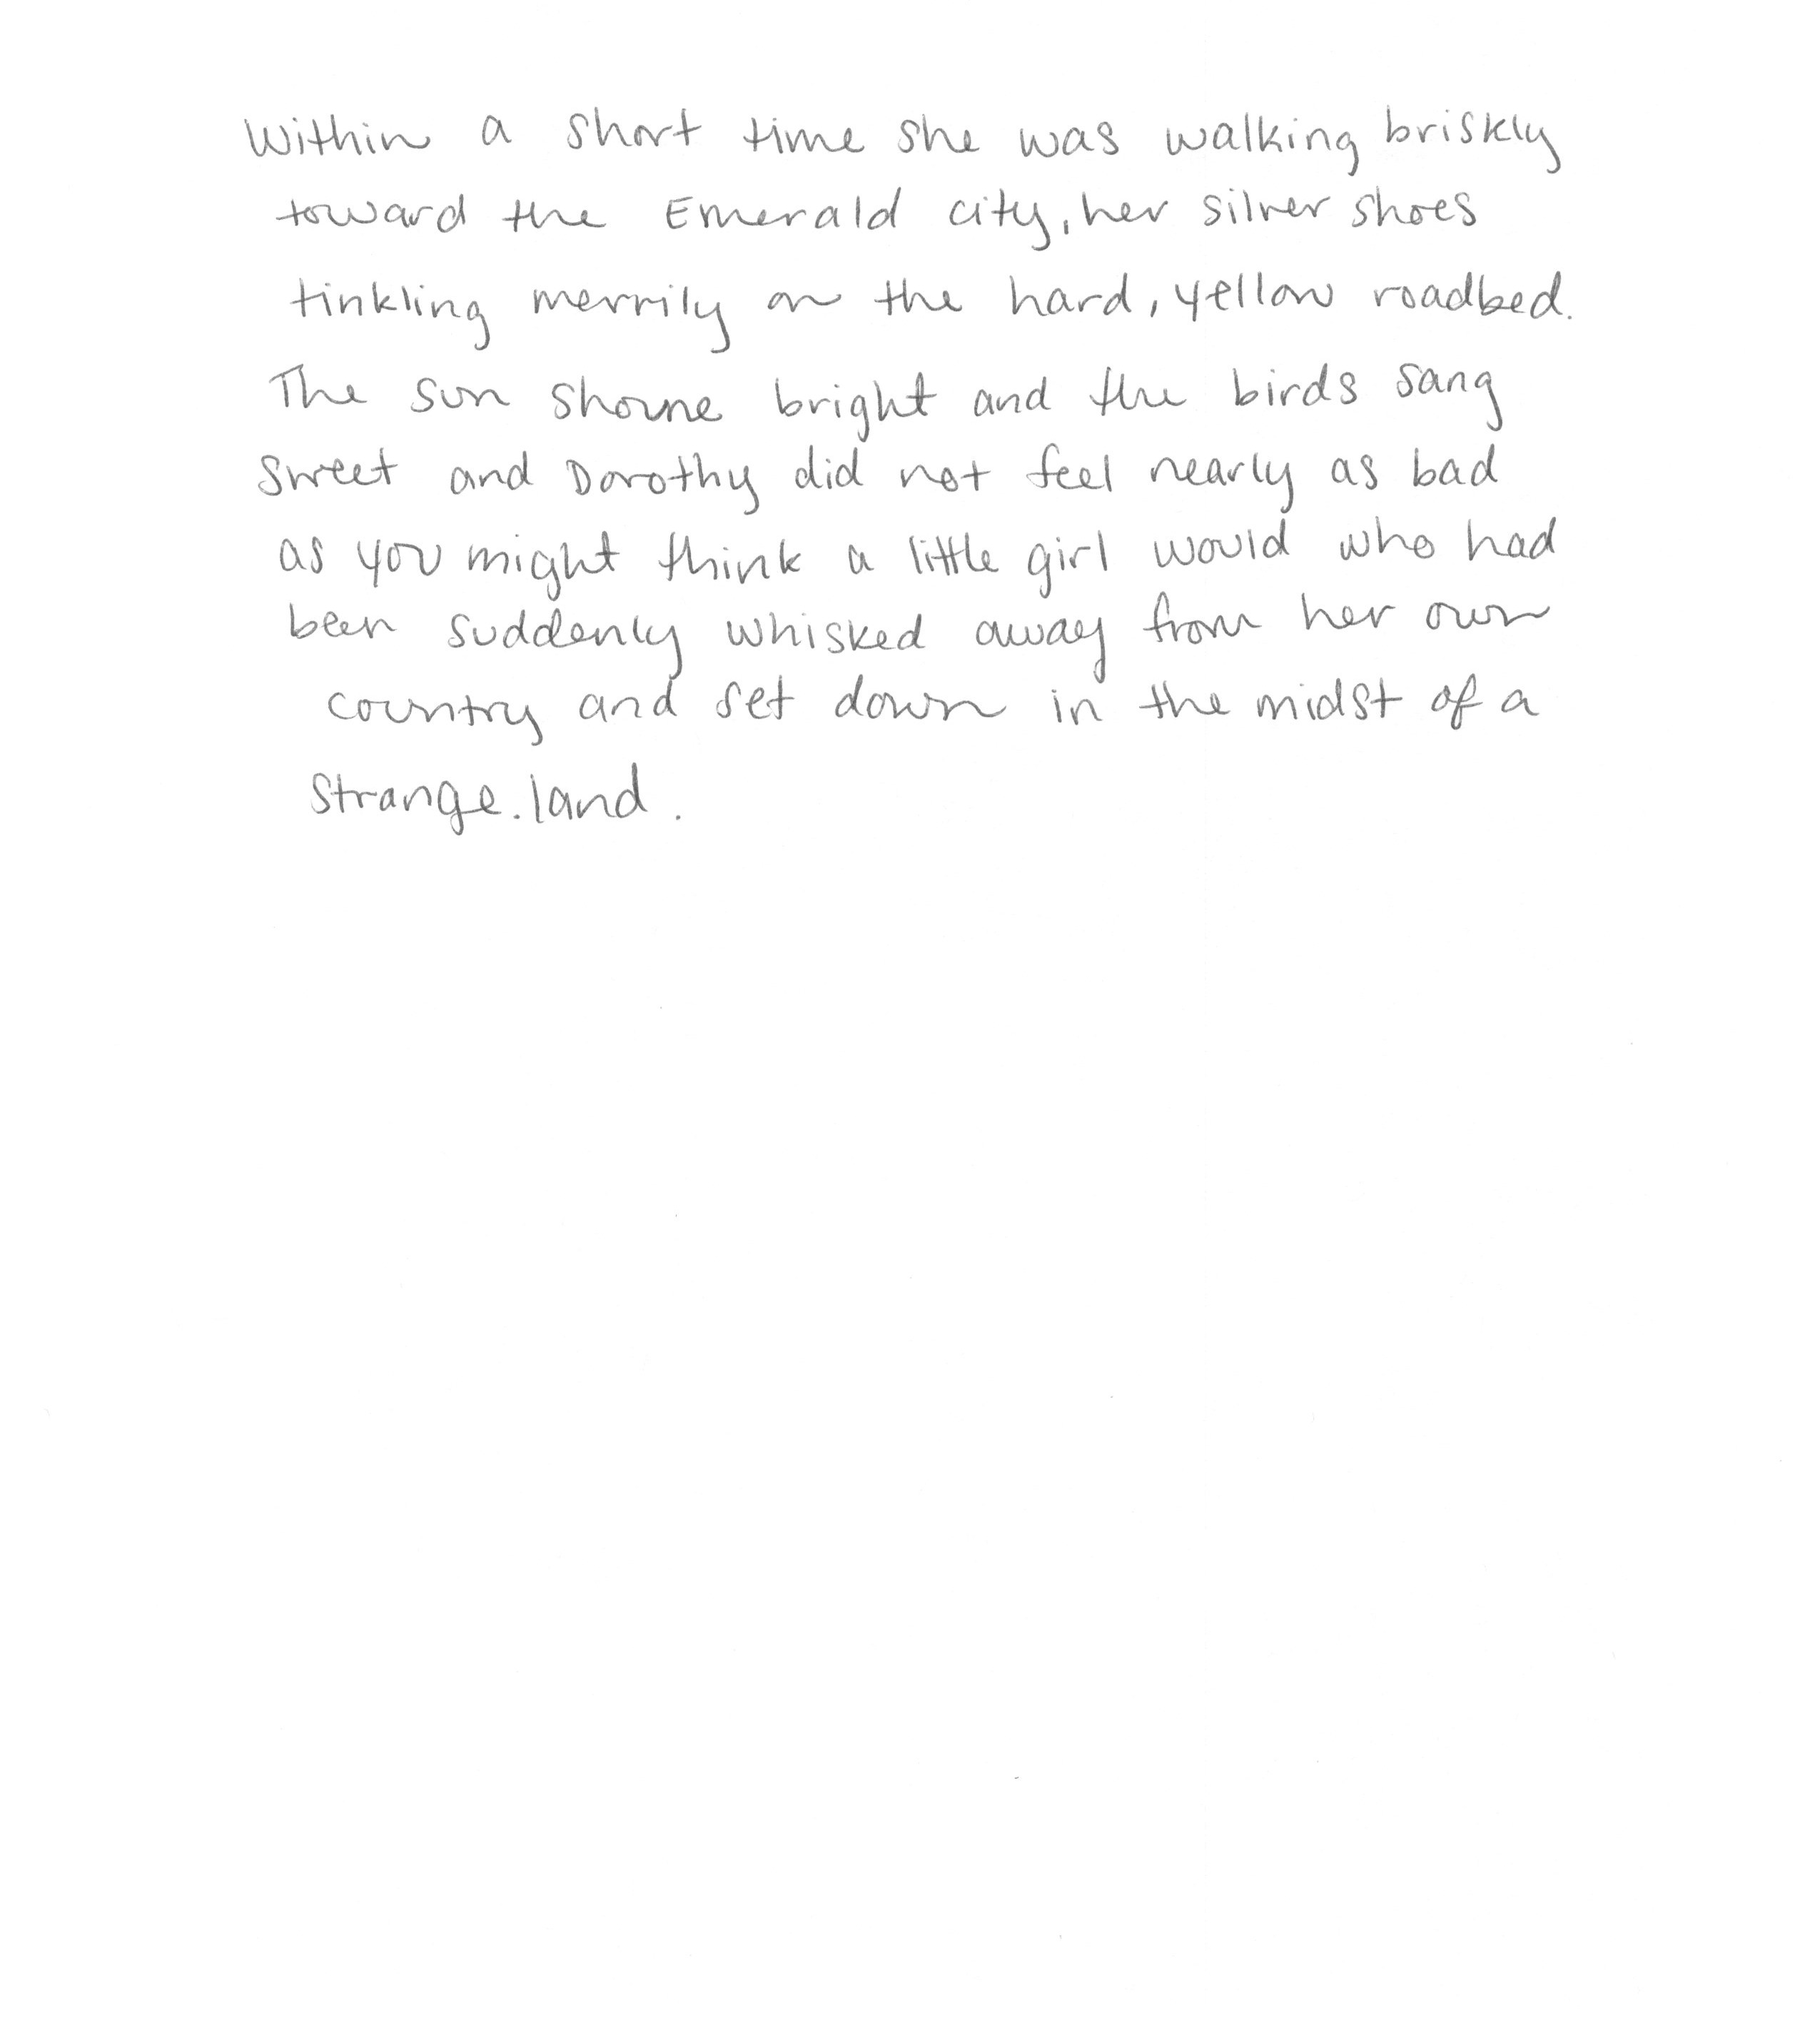 Within a short time she was walking briskly
toward the Emerald city, her silver shoes
tinkling merrily on the hard, yellow roadbed.
The sun shone bright and the birds sang
sweet and Dorothy did not feel nearly as bad
as you might think a little girl would who had
been suddenly whisked away from her own
country and set down in the midst of a
strange.land.